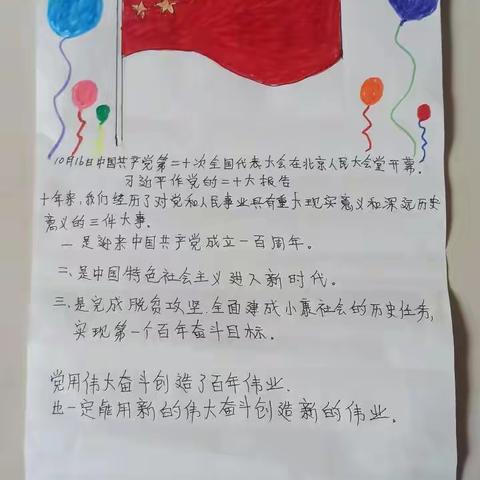 10月16日中国共产党第二十次全国代表大会在北京人民大会堂开幕.
习近平作党的二十大报告
十年来,我们经历了对党和人民事业具有重大现实意义和深远历史
意义的三件大事.
一是迎来中国共产党成立一百周年。
二、是中国特色社会主义进入新时代。
三、是完成脱贫攻坚.全面建成小康社会的历史任务,
实现第一个百年奋斗目标.
党用伟大奋斗创造了百年伟业.
也一定能用新的伟大奋斗创造新的伟业.